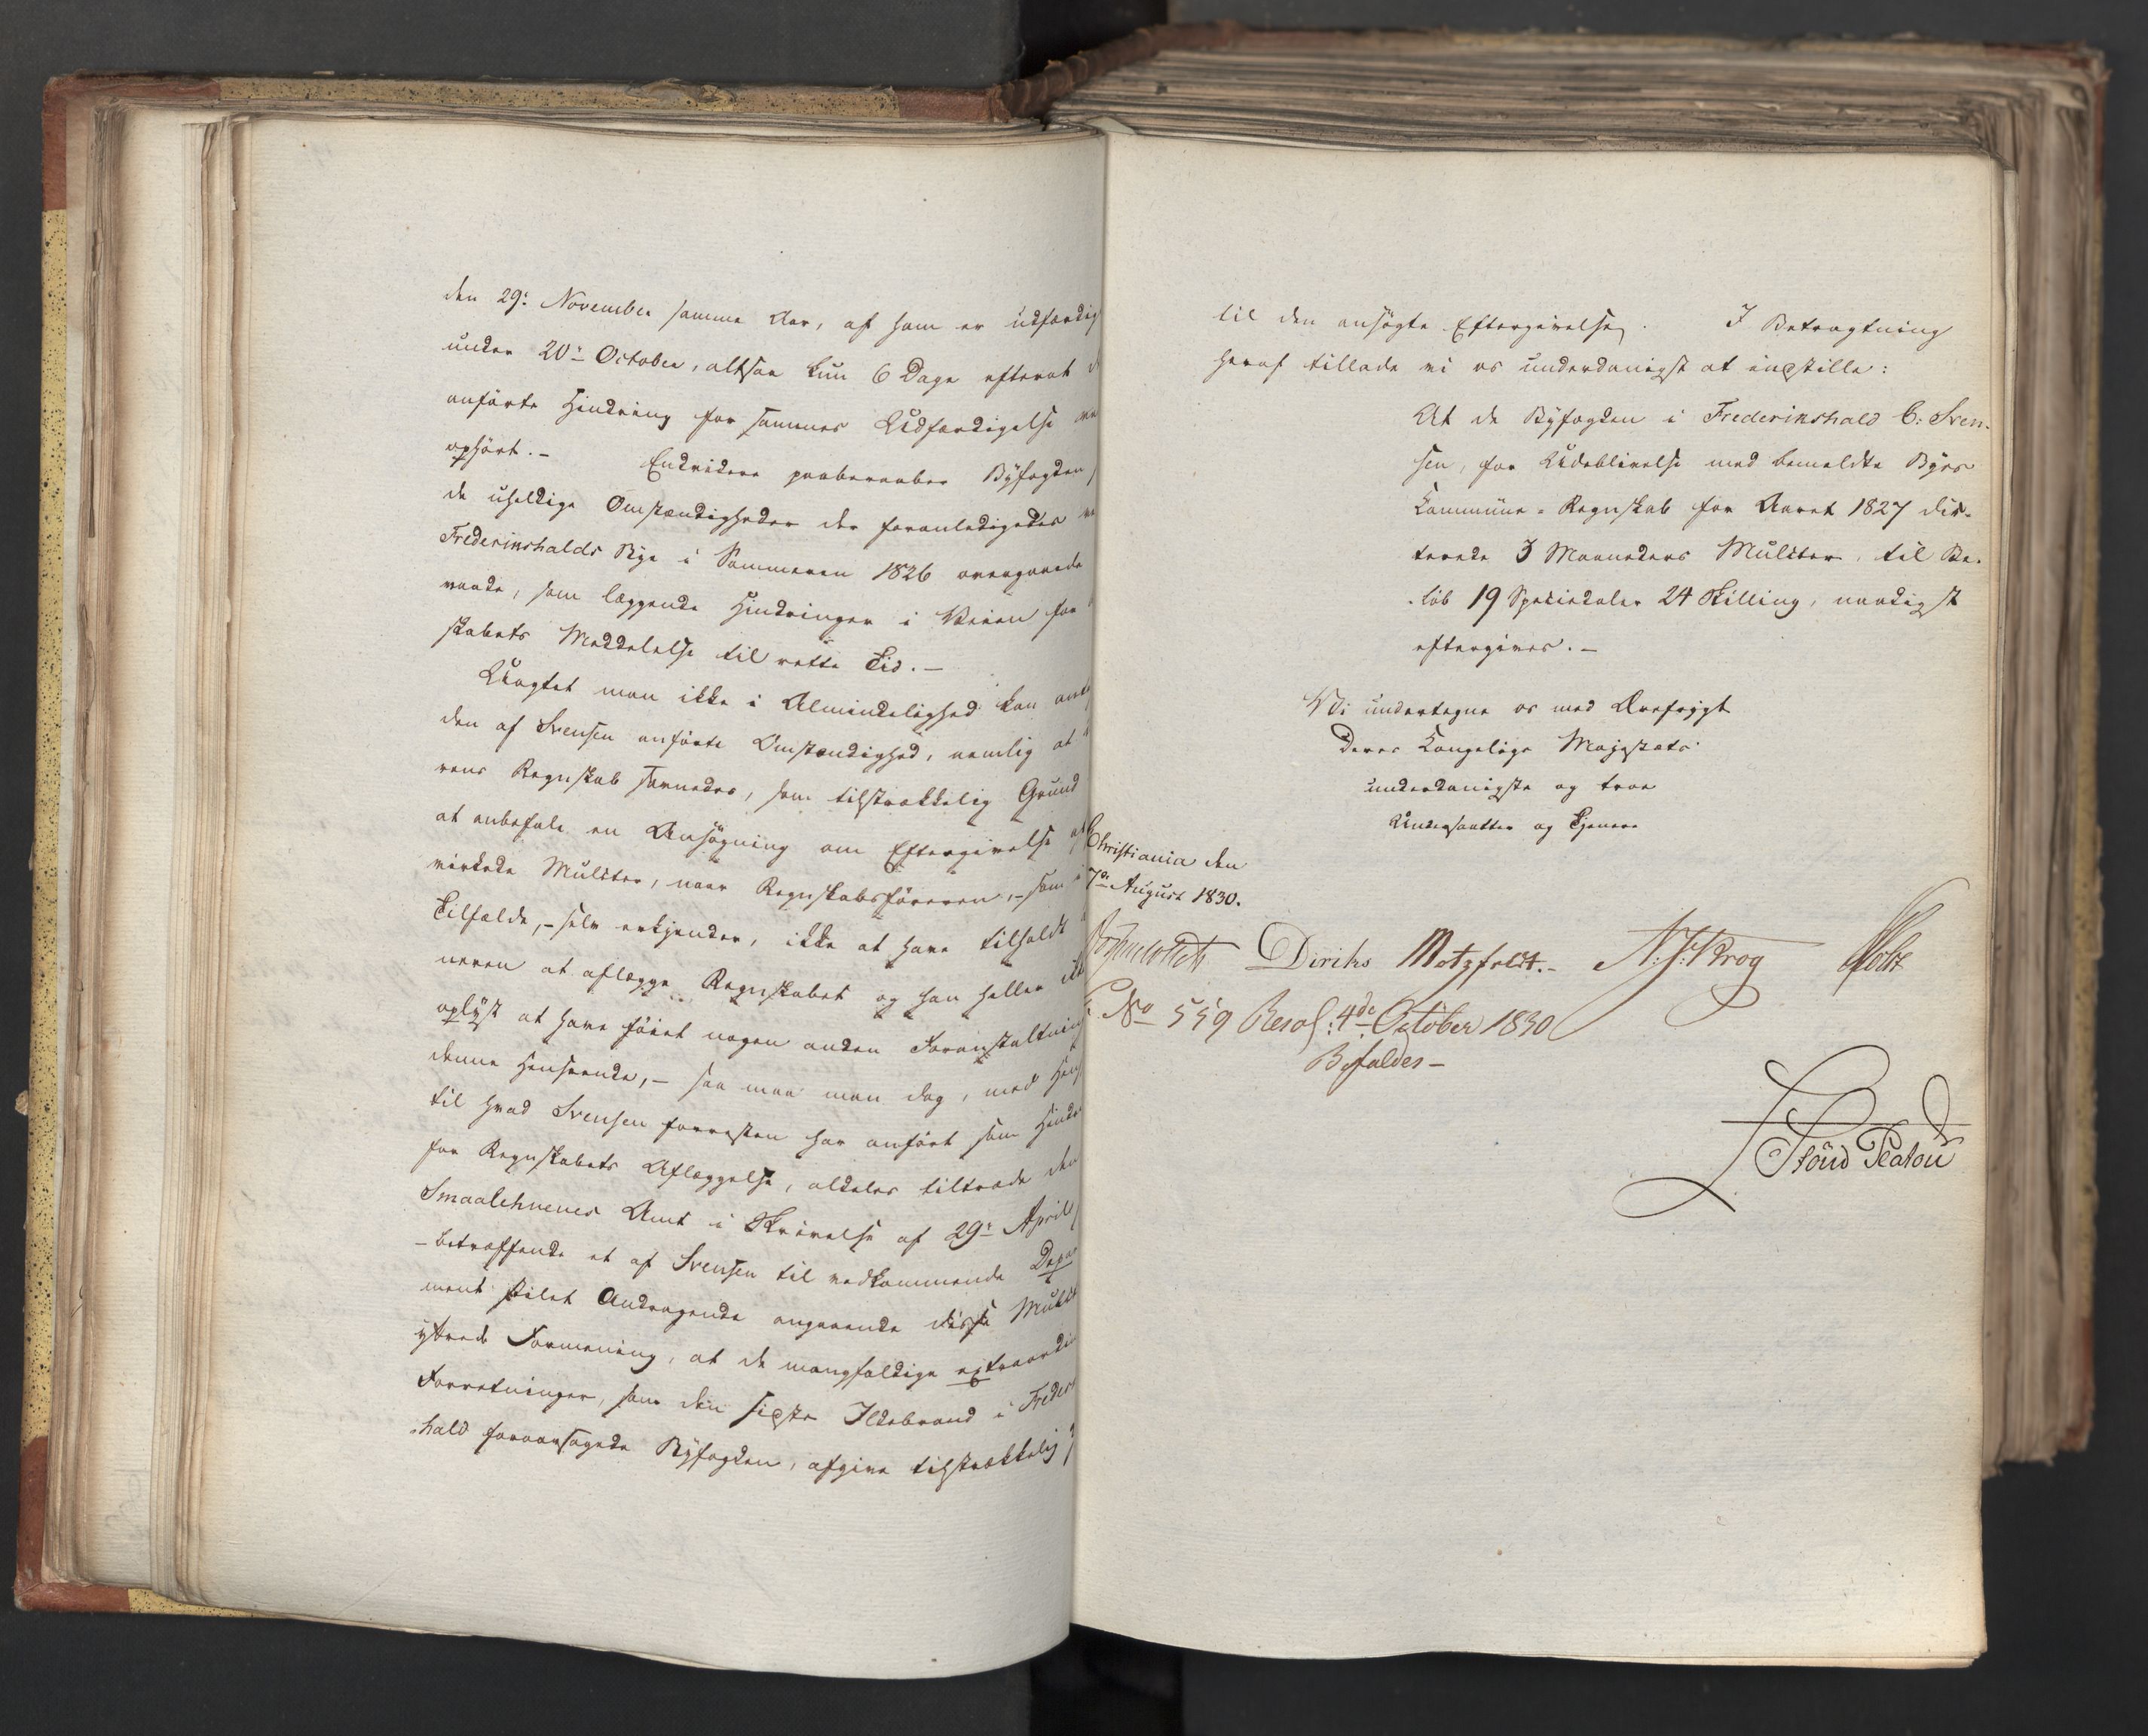 den 29: November samme Aar, af ham er udfærdig
under 20de October, altsaa kun 6 Dage efterat
anførte Hindring for sammes Udfærdigelse
ophørt. – Endvidere paaberaaber Byfogden
de uheldige Omstændigheder der foranledigedes
Frederikshalds Bye i Sommeren 1826 overgaaede
vaade, som læggende Hindringer i Veien for
skabets Meddelelse til rette Tid. –
Uagtet man ikke i Almindelighed kan
den af Svensen anførte Omstændighed, nemlig at
rens Regnskab savnedes, som tilstrækkelig Grund
at anbefale en Ansøgning om Eftergivelse af
virkede Mulkter, naar Regnskabsføreren, – som i
Tilfælde, – selv erkjender, ikke at have tilholdt
neren at aflægge Regnskabet og han heller
oplyst at have føiet nogen anden Foranstaltning
denne Henseende, – saa maa man dog, med
til hvad Svensen forresten har anført som
for Regnskabets Aflæggelse, aldeles tiltræde den
Smaalehnenes Amt i Skrivelse af 29de April
– betræffende et af Svensen til vedkommende Depar
ment stilet Andragende angaaende disse
yttrede Formening, at de mangfoldige extraordin
Forretninger, som den sidste Ildebrand i Freder
hald foraarsagede Byfogden, afgive tilstrækkelig
til den ansøgte Eftergivelse. I Betragtning
heraf tillade vi os underdanigst at indstille:
At de Byfogden i Frederikshald C: Sven-
sen, for Udeblivelse med bemeldte Byes
Kommune-Regnskab for Aaret 1827 dic-
terede 3 Maaneders Mulkter, til Be-
løb 19 Speciedaler 24 Skilling, naadigst
eftergives. –
Vi undertegne os med Ærefrygt
Deres Kongelige Majestæts
underdanigste og troe
Undersaatter og Tjenere
Christiania den
7de August 1830.
Diriks Motzfeldt. – N. J. Krog Holst
No 559 Resol: 4de October 1830
Bifaldes –